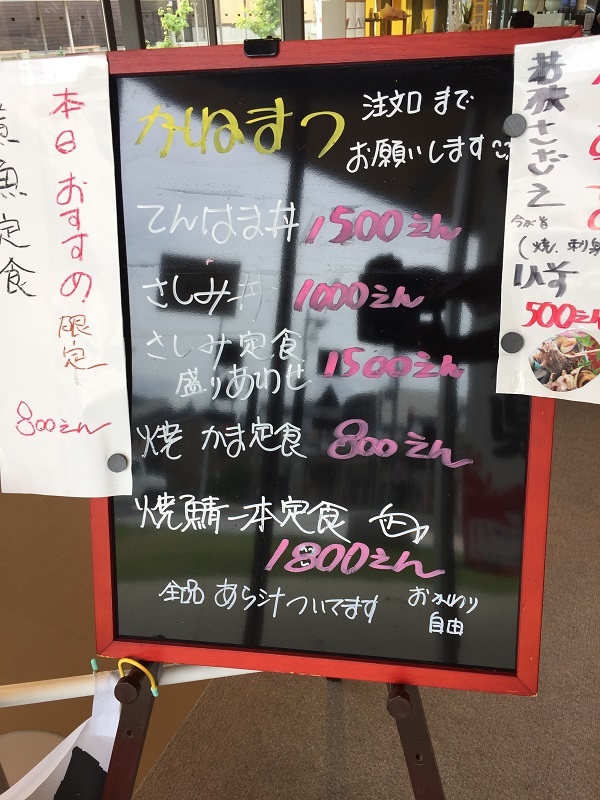 本日おすすめ 限定
煮魚定食
800えん
かねまつ
注文口まで
お願いします
てんはま丼 1500えん
さしみ丼 1000えん
さしみ定食
盛りあわせ 1500えん
焼 かま定食 800えん
焼鯖一本定食
1800えん
全品 あら汁ついてます
おかわり
自由
若狭さざえ
今が旬
(焼、刺身
います
500えん